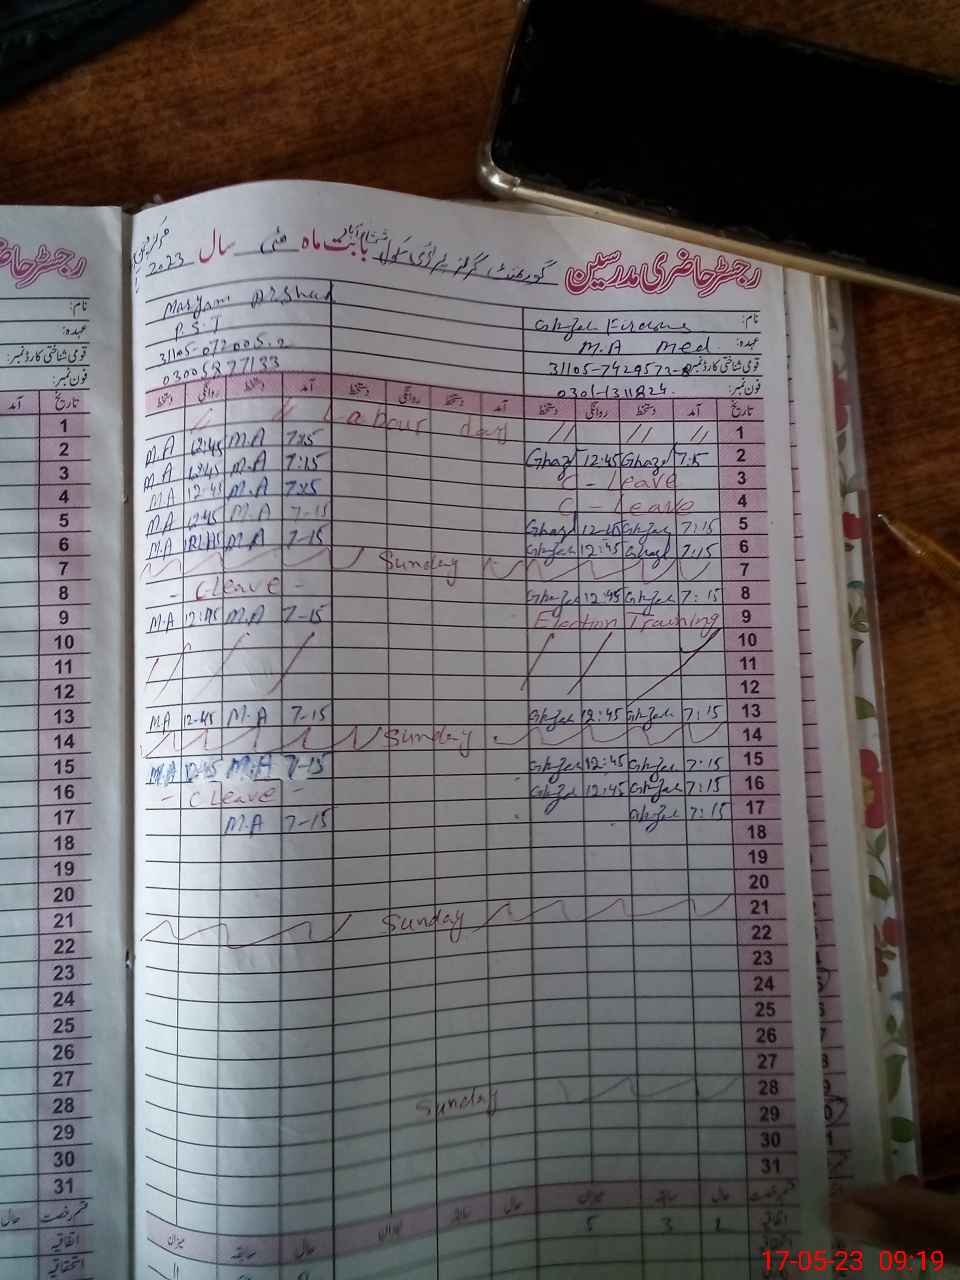 رجسٹر حاضری مدرسین گورنمنٹ گرلز پرائمری سکول بابت ماہ مئی سال 2023
نام: Ghazal Firdous
Maryam Arshad
عہدہ: M.A Med
P.S.T
قومی شناختی کارڈ نمبر: 31105-7429572-8
31105-072005.2
فون نمبر: 0301-1311824
03005877133
تاریخ آمد دستخط روانگی دستخط آمد دستخط روانگی دستخط آمد دستخط روانگی دستخط
1 // // // Labour day // //
2 7:15 Ghazal 12:45 Ghazal 7:15 M.A 12:45 M.A
3 C - Leave 7:15 M.A 12:45 M.A
4 C - Leave 7:15 M.A 12:45 M.A
5 7:15 Ghazal 12:45 Ghazal 7-15 M.A 12:45 M.A
6 7:15 Ghazal 12:45 Ghazal 7-15 M.A M.A
7 Sunday
8 7:15 Ghazal 12:45 Ghazal - C Leave -
9 Election Training 7-15 M.A 12:45 M.A
10
11
12
13 7:15 Ghazal 12:45 Ghazal 7-15 M.A 12-45 M.A
14 Sunday
15 7:15 Ghazal 12:45 Ghazal 7-15 M.A 12:45 M.A
16 7:15 Ghazal 12:45 Ghazal - C Leave -
17 7:15 Ghazal 7-15 M.A
18
19
20
21 Sunday
22
23
24
25
26
27
28 Sunday
29
30
31
قسم رخصت حال سابقہ میزان حال سابقہ میزان حال سابقہ میزان
اتفاقیہ 1 3 5
رجسٹر حاضری
نام:
عہدہ:
قومی شناختی کارڈ نمبر:
فون نمبر:
تاریخ آمد
1
2
3
4
5
6
7
8
9
10
11
12
13
14
15
16
17
18
19
20
21
22
23
24
25
26
27
28
29
30
31
قسم رخصت حال
اتفاقیہ
استحقاقیہ
17-05-23 09:19